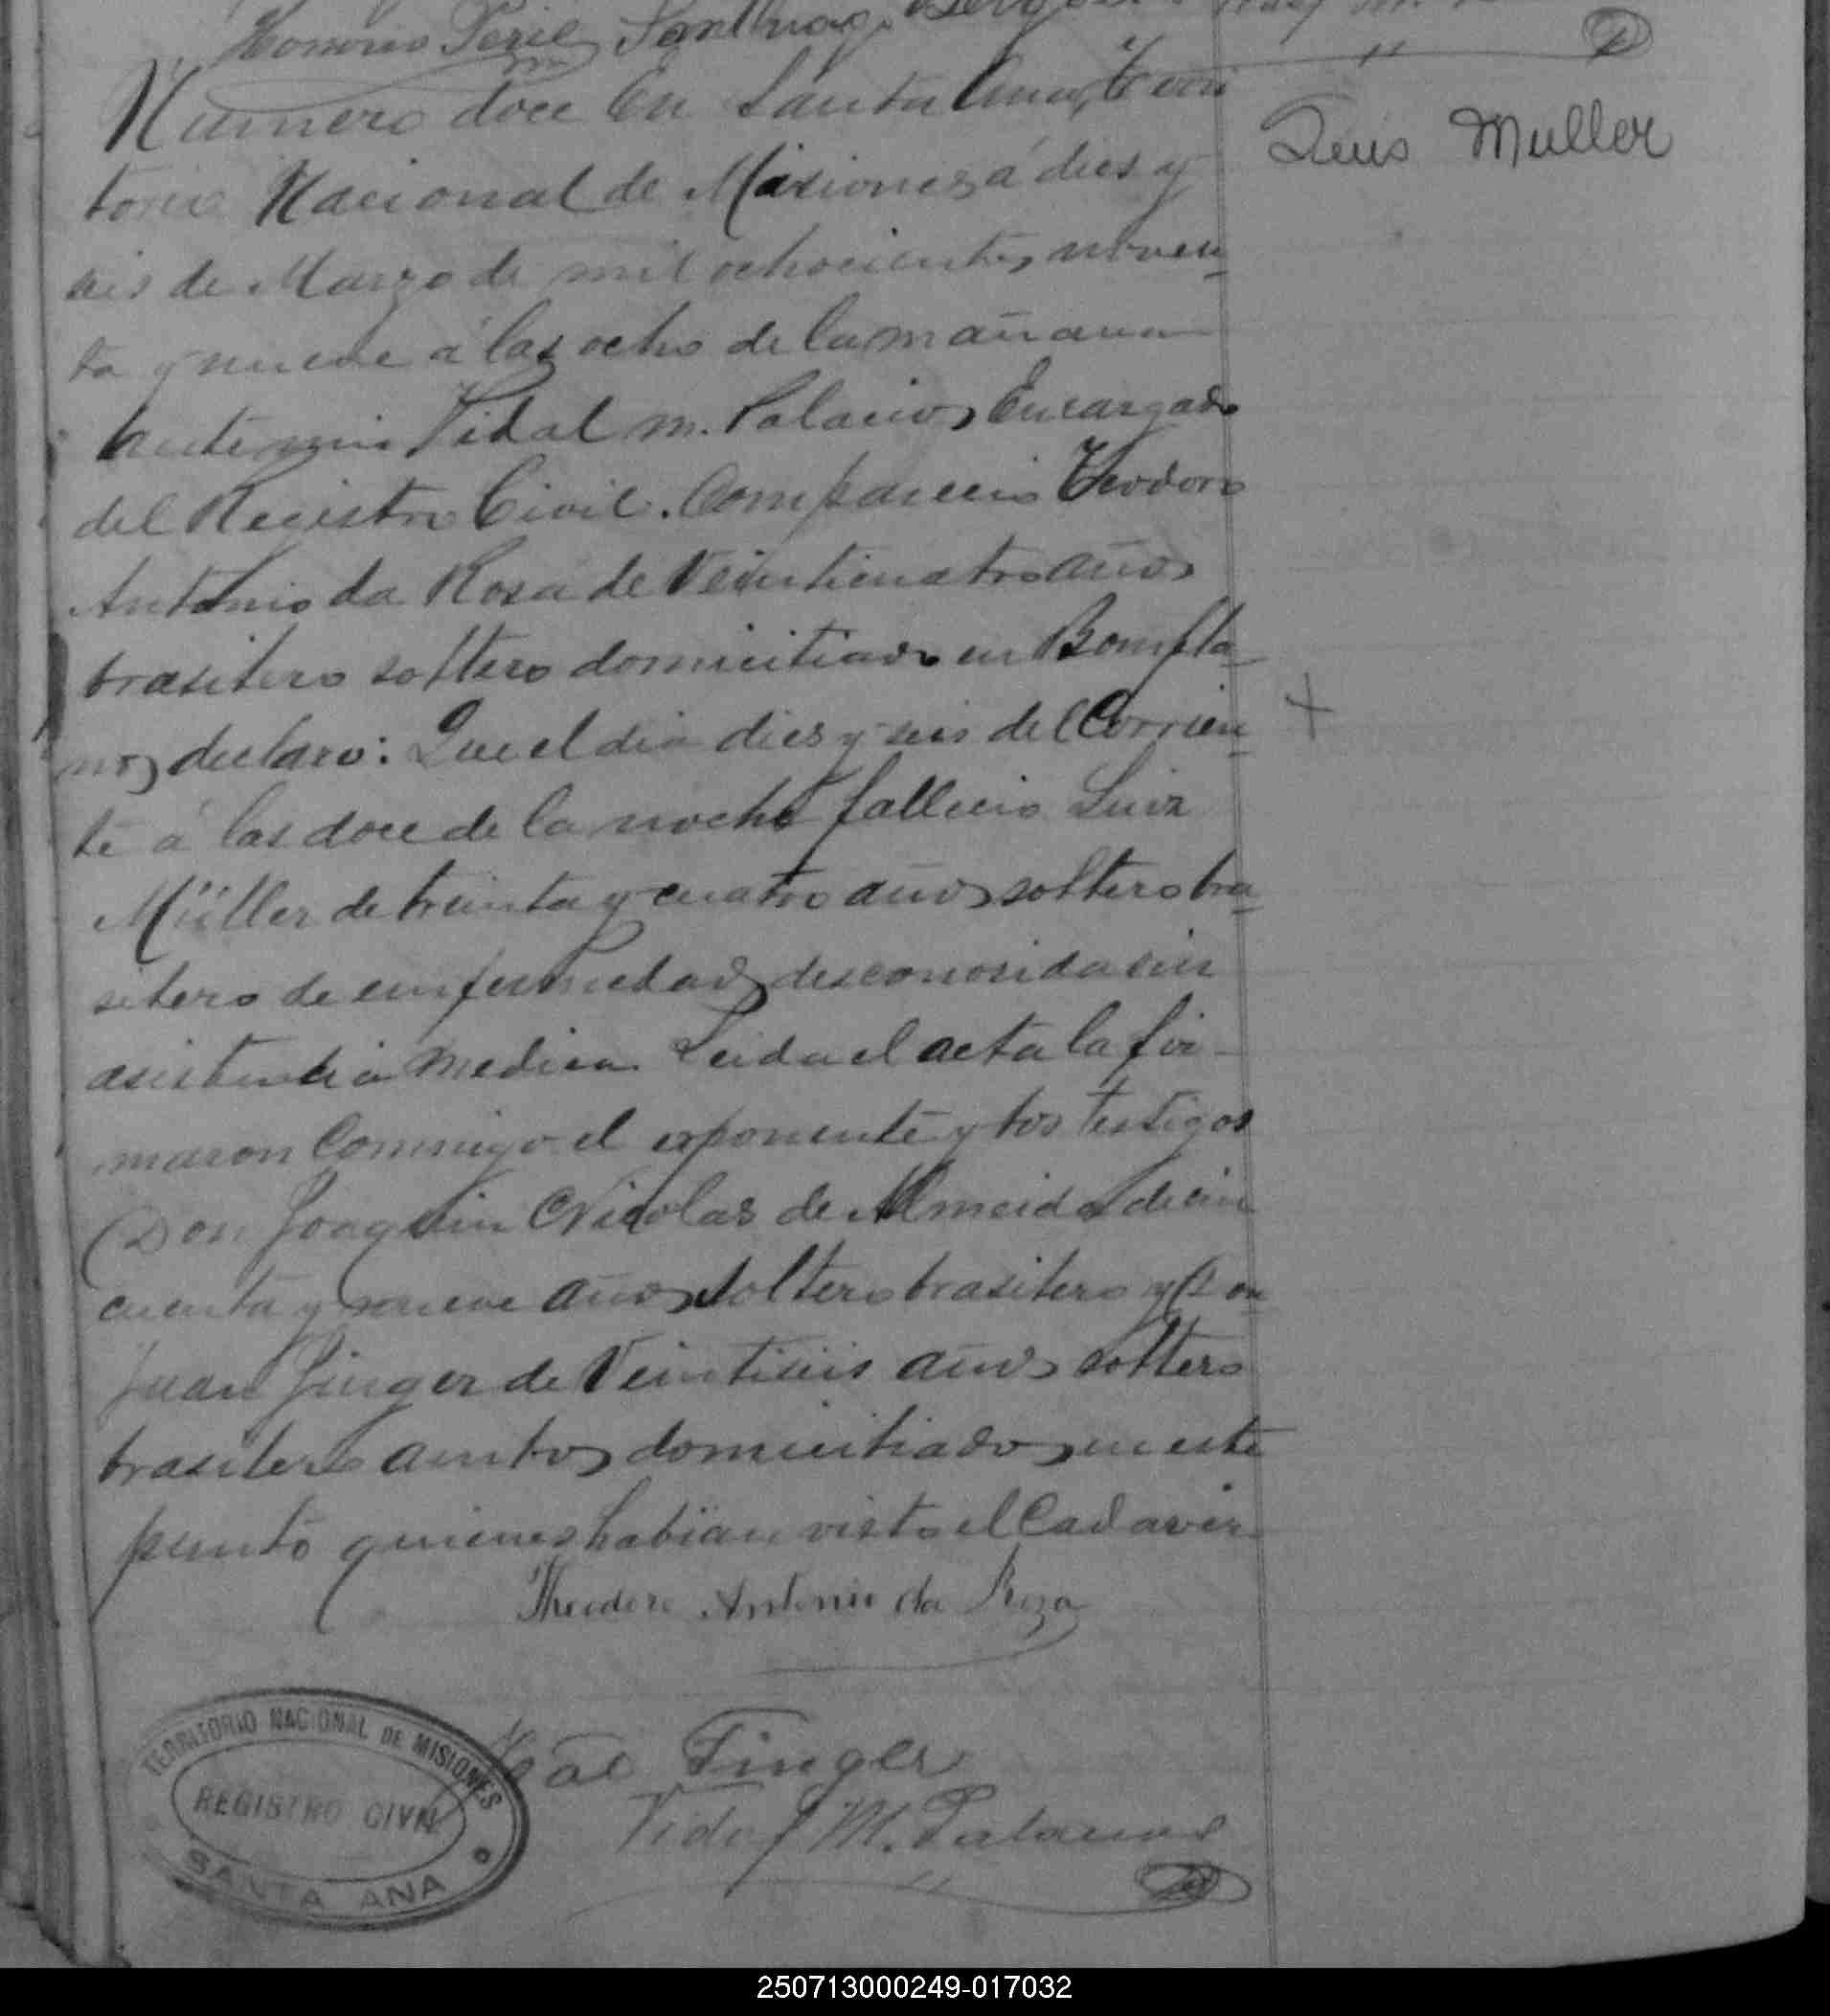 Honorio
Numero doce En Santa Ana, Terri
torio Nacional de Misiones, á dies y
seis de Marzo de mil ochocientos noven
ta y nueve á las ocho de la mañana
Ante mi Vidal M. Palacios Encargado
del Registro Civil. Comparecio Theodoro
Antonio da Rosa de Veinticuatro años
brasilero soltero domiciliado en Bompla
no, declaro: Que el dia dies y seis del Corrien
te á las doce de la noche fallecio Luiz
Müller de treinta y cuatro años soltero bra
silero de enfermedad desconosida sin
asistencia medica Leida el acta la fir
maron Conmigo el exponente y los testigos
Don Joaquin Nicolas de Almeida de cin
cuenta y nueve años soltero brasilero y Don
Juan Finger de Veintiseis años soltero
brasilero ambos domiciliados en este
punto quienes habian visto el Cadaver
Luis Muller
Theodoro Antonio da Roza
Finger
Vidal M. Palacios
TERRITORIO NACIONAL DE MISIONES
REGISTRO CIVIL
SANTA ANA
250713000249-017032